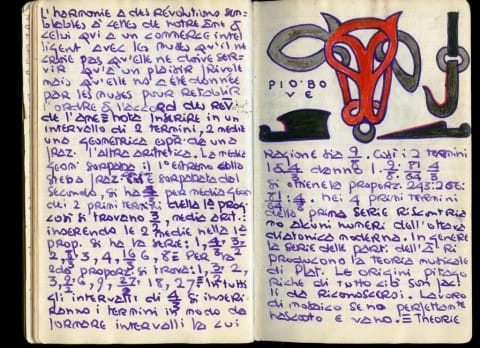 L'HARMONIE A DES RÉVOLUTIONS SEM-
BLABLES À CELLES DE NOTRE ÂME &
CELUI QUI A UN COMMERCE INTEL
LIGENT AVEC LES MUSES QU'IL NE
CROIE PAS QU'ELLE NE DOIVE SER-
VIR QU'A UN PLAISIR FRIVOLE
MAIS QU'ELLE NOUS A ÉTÉ DONNÉE
PAR LES MUSES POUR RÉTABLIR
L'ORDRE & L'ACCORD DES
DE L'AME NOTA INSERIRE IN UN
INTERVALLO DI 2 TERMINI, 2 MEDIE
UNA GEOMETRICA
L'ALTRA ARITMETICA. LA MEDIA
GEOM SORPASSA IL 1° ESTREMO
STESSA FRAZ. SORPASSATA DAL
SECONDO, SI HA PER MEDIA GEOM
DEI 2 PRIMI TERMINI DELLA 1ª PROG
COSÌ SI TROVANO 3/2, MEDIA ARIT.:
INSERENDO LE 2 MEDIE NELLA 1ª
PROP. SI HA LA SERIE: 1, 4/3, 3/2
2, 8/3, 3, 4, 16/3, 6, 8 = PER LA
2DA PROPORZ. SI TROVA: 1, 3/2, 2,
3, 9/2, 6, 9, 27/2, 18, 27 = IN TUTTI
GLI INTERVALLI DI 4/3 SI INSERI
RANNO I TERMINI IN MODO DA
FORMARE INTERVALLI LA CUI
PIO' BO
VE
RAGIONE SIA 9/8. COSÌ I 2 TERMINI
1 & 4/3 DANNO 1 . 9/8 : 81/64 4/3
SI OTTIENE LA PROPORZ. 243:256:
81/64 : 4/3. NEI 4 PRIMI TERMINI
DELLA PRIMA SERIE RISCONTRIA
MO ALCUNI NUMERI DELL'OTTAVA
DIATONICA MODERNA. IN GENERE
LA SERIE DELLE PARTI DELL'A. RI
PRODUCONO LA TEORIA MUSICALE
DI PLAT. LE ORIGINI PITAGO
RICHE DI TUTTO CIÒ SON FACI
LI DA RICONOSCERSI. LAVORO
DI MOSAICO SE NO PERFETTAMTE
NASCOSTO E VANO. = THEORIE